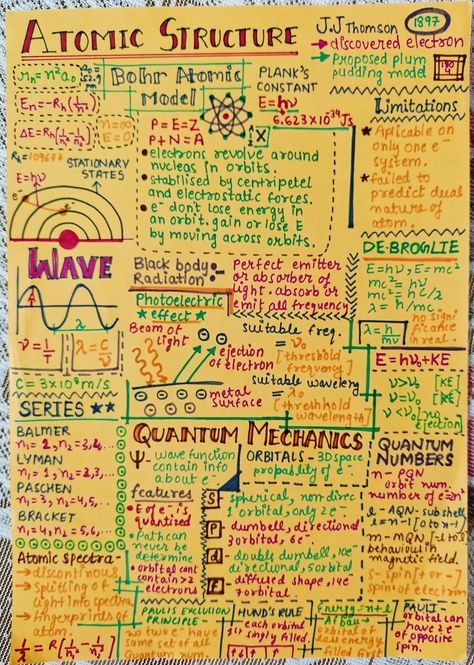 ATOMIC STRUCTURE
J.J Thomson
1897
→ discovered electron
→ Proposed plum
pudding model
rₙ = n²a₀
Eₙ = Rₕ(1/n²)
ΔE = Rₕ(1/n₁² - 1/n₂²)
n = ∞
E = 0
STATIONARY
STATES
E=hν
Bohr Atomic
Model
PLANK'S
CONSTANT
E=hν
6.623×10³⁴Js
P = E = Z
P + N = A
X
• electrons revolve around
nucleas in orbits.
• stabilised by centripetel
and electrostatic forces.
• e⁻ dont lose energy in
an orbit. gain or lose E
by moving across orbits.
Limitations
* Aplicable on
only one e⁻
system.
* failed to
predict dual
nature of
atom.
WAVE
λ
ν = 1/T
λ = C/ν
C = 3×10⁸ m/s
Black body
Radiation
Perfect emitter
or absorber of
light. absorb or
emit all frequency
Photoelectric
effect
Beam of
Light
ejection
of electron
metal
surface
suitable freq.
= ν₀
[threshold
frequency]
suitable waveleng
= λ₀
[threshhold
wavelength]
DE-BROGLIE
E=hν, E=mc²
mc² = hν
mc² = hc/λ
λ = h/mc
λ = h/mv
no signi
ficance
in real.
E=hν₀+KE
ν>ν₀ [KE]
ν=ν₀
ν<ν₀ [no
ejection]
SERIES ★★
BALMER
n₁=2, n₂=3,4,...
LYMAN
n₁=1, n₂=2,3,...
PASCHEN
n₁=3, n₂=4,5,..
BRACKET
n₁=4, n₂=5,6,...
Atomic spectra-
→ discontinous
→ splitting of
light into spectra
→ fingerprints of
atom.
1/λ = R[1/n₁² - 1/n₂²]
QUANTUM MECHANICS
Ψ - wave function
contain info
about e⁻
ORBITALS - 3D space
propability of e⁻
features
• E of e⁻ is
quantized
• Path can
never be
determine
• orbital cant
contain >2
electrons
S - spherical, non direc
1 orbital, only 2e⁻
P - dumbell, directional
3 orbital, 6e⁻
d - double dumbell, 10e⁻
directional, 5 orbital
f - diffused shape, 14e⁻
7 orbital
QUANTUM
NUMBERS
n - PQN
orbit num.
number of e⁻ = 2n²
l - AQN - subshell
l = n-1 [0 to n-1]
m - MQN [-l to l]
behaviour in
magnetic field.
s - spin [+ or -]
spin of electron
PAULIS EXCLUSION
PRINCIPLE
no two e⁻ have
same set of all
Quantum num.
HUND'S RULE
each orbit
1st singly filled.
Energy = n+l
Afbau -
orbital of
low energy
filled first
PAULI -
orbital can
have 2 e⁻
of opposite
spin.